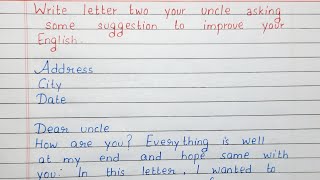 Write letter two your uncle asking
some suggestion to improve your
English.
Address
City
Date
Dear uncle
How are you? Everything is well
at my end and hope same with
you. In this letter, I wanted to